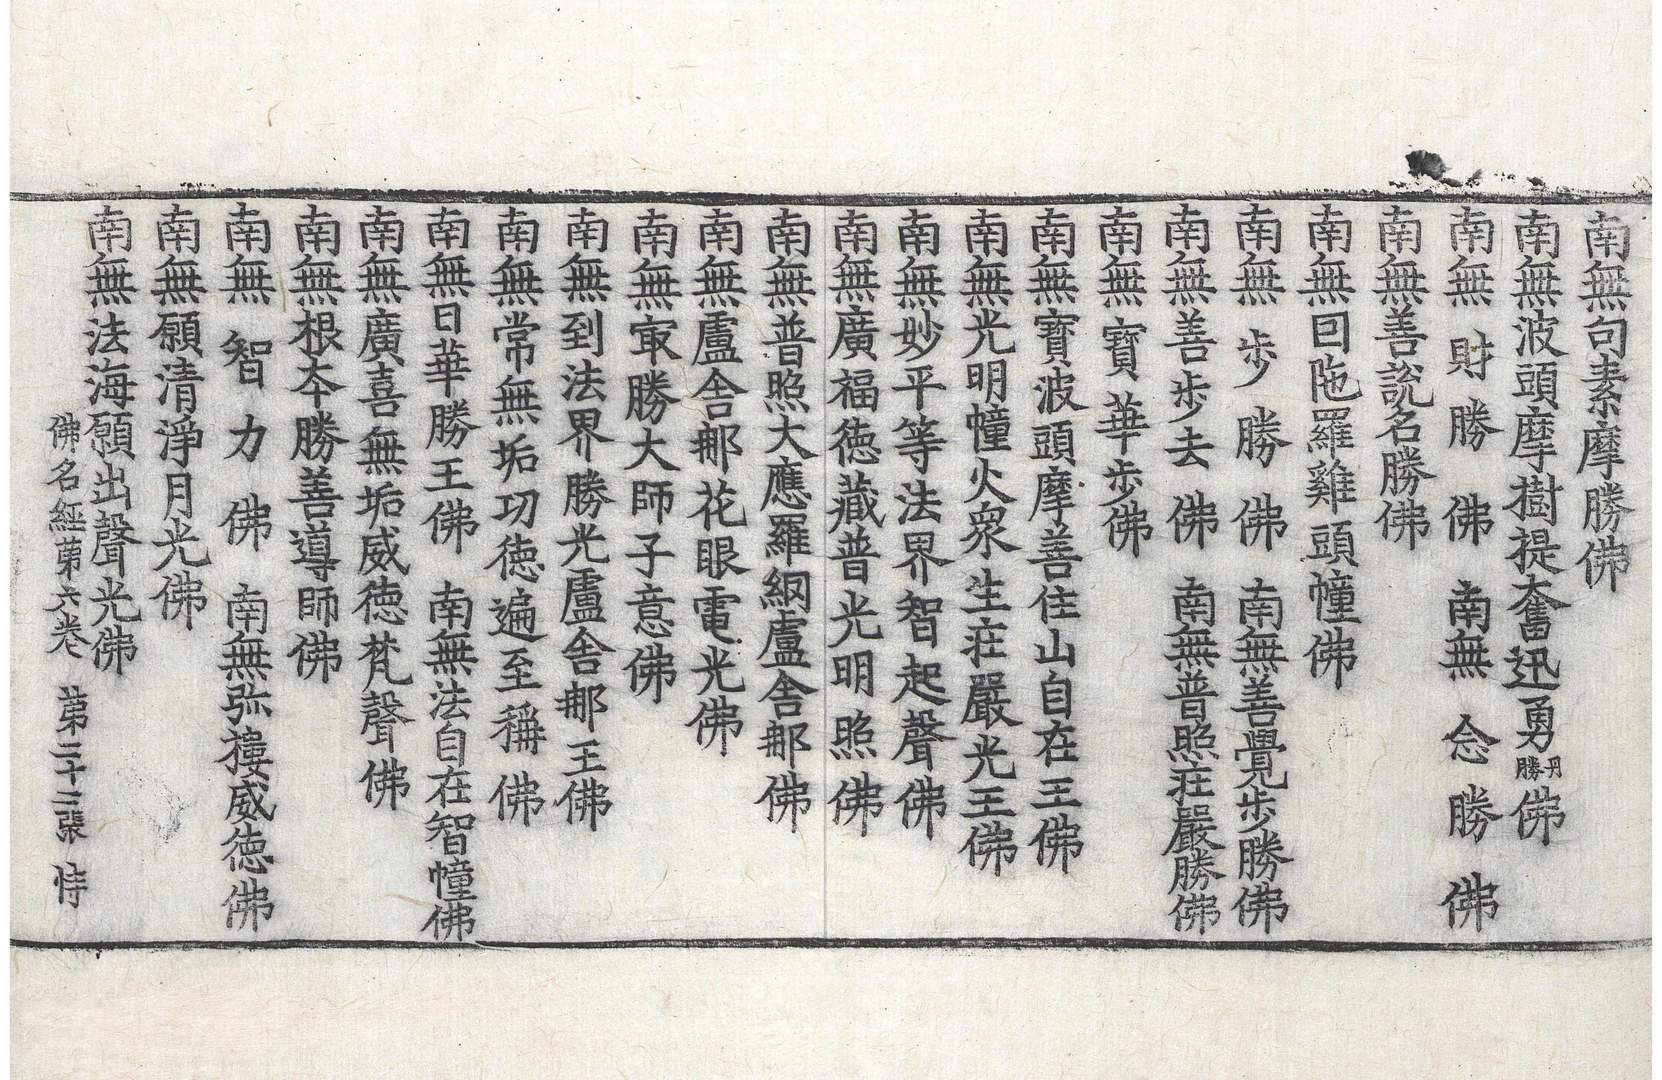 南無句素摩勝佛
南無波頭摩樹提奮迅勇丹勝佛
南無財勝佛 南無念勝佛
南無善說名勝佛
南無因陁羅雞頭幢佛
南無步勝佛 南無善覺步勝佛
南無善步去佛 南無普照庄嚴勝佛
南無寶華步佛
南無寶波頭摩善住山自在王佛
南無光明幢火衆生庄嚴光王佛
南無妙平等法界智起聲佛
南無廣福德藏普光明照佛
南無普照大應羅網盧舍那佛
南無盧舍那花眼電光佛
南無寂勝大師子意佛
南無到法界勝光盧舍那王佛
南無常無垢功德遍至稱佛
南無日華勝王佛 南無法自在智幢佛
南無廣喜無垢威德梵聲佛
南無根夲勝善導師佛
南無智力佛 南無弥樓威德佛
南無願清淨月光佛
南無法海願出聲光佛
佛名經苐六卷 苐三十二張 恃